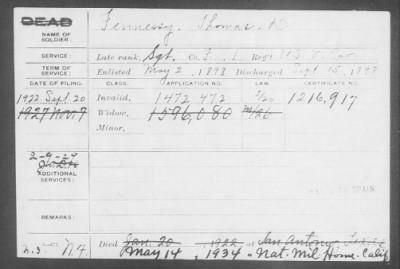 DEAD
NAME OF SOLDIER: Fennessy, Thomas
SERVICE: Late rank, Sgt. Co. Reg't
TERM OF SERVICE: Enlisted May 2, 1898 Discharged Sept. 15, 1898
DATE OF FILING. CLASS. APPLICATION NO. LAW. CERTIFICATE NO.
1922 Sept 20 Invalid, 1472 472 1216,917
1927 Nov. 7 Widow, 1596,080
Minor,
2-9-29
ADDITIONAL SERVICES:
REMARKS:
Died Jan. 20 1922 at San Antonio Texas
May 14, 1934 Nat. Mil Home. Calif